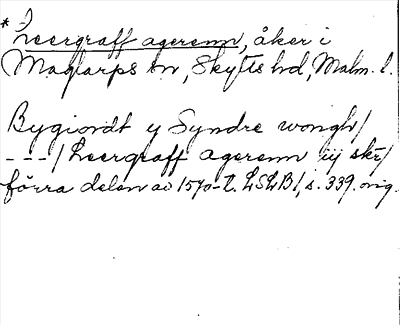 * Leergraff agerenn, åker i
Maglarps sn, Skytts hd, Malm. l.
Bygiordt y Syndre wongh/
---/ Leergraff agerenn iij skr/
förra delen av 1570-t. LSLB I, s. 339. orig.